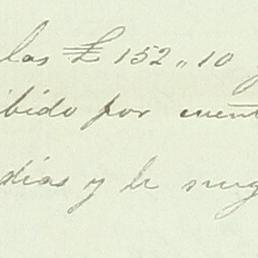 las £ 152,, 10
ibido por cuent
dias y le rueg